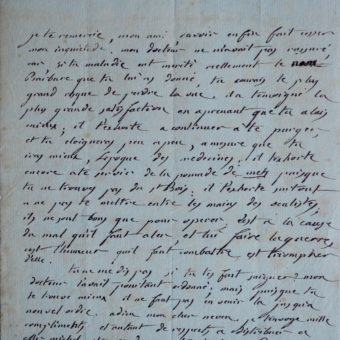 je te remercie, mon ami d'avoir enfin fait cesser
mon inquietude. mon docteur ne m'avait pas rassuré
car si ta maladie eut mérité réellement le nom
Barbare que tu lui as donné, tu courais le plus
grand risque de perdre la vue. il a temoigné la
plus grande satisfaction en aprenant que tu alais
mieux; il t'exhorte a continuer a te purger
et tu eloigneras peu a peu, a mesure que tu
iras mieux, l'epoque des medecines. il t'exhorte
encore a te servir de la pomade de puisque
tu ne trouves pas du st Bois; il t'exhorte surtout
a ne pas te mettre entre les mains des oculistes,
ils ne sont bons que pour operer. c'est a la cause
du mal qu'il faut aler et lui faire la guerre,
c'est l'humeur qu'il faut combattre et triompher
d'elle.
tu ne me dis pas si tu t'es fait saigner? mon
docteur l'avait pourtant ordonné; mais puisque tu
te trouves mieux il ne faut pas en venir la jusqu'a
nouvel ordre. adieu mon cher neveu je t'envoye mille
compliments et autant de respects a distribuer a
michel